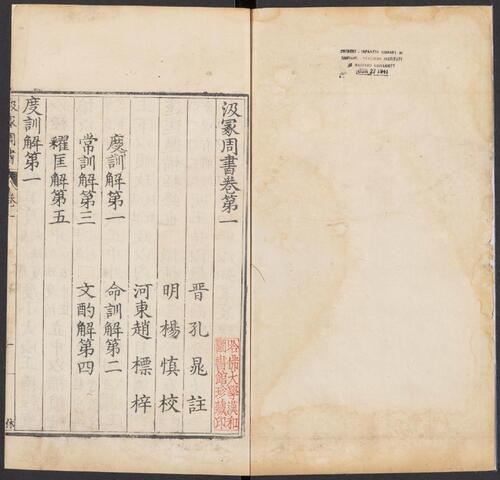 CHINESE - JAPANESE LIBRARY OF
HARVARD - YENCHING INSTITUTE
AT HARVARD UNIVERSITY
JUN 27 1941
汲冡周書卷第一
晋孔晁註
明楊慎校
河東趙標梓
度訓解第一
命訓解第二
常訓解第三
文酌解第四
糴匡解第五
度訓解第一
汲冡周書
卷一
一
哈佛大學漢和
圖書館珍藏印